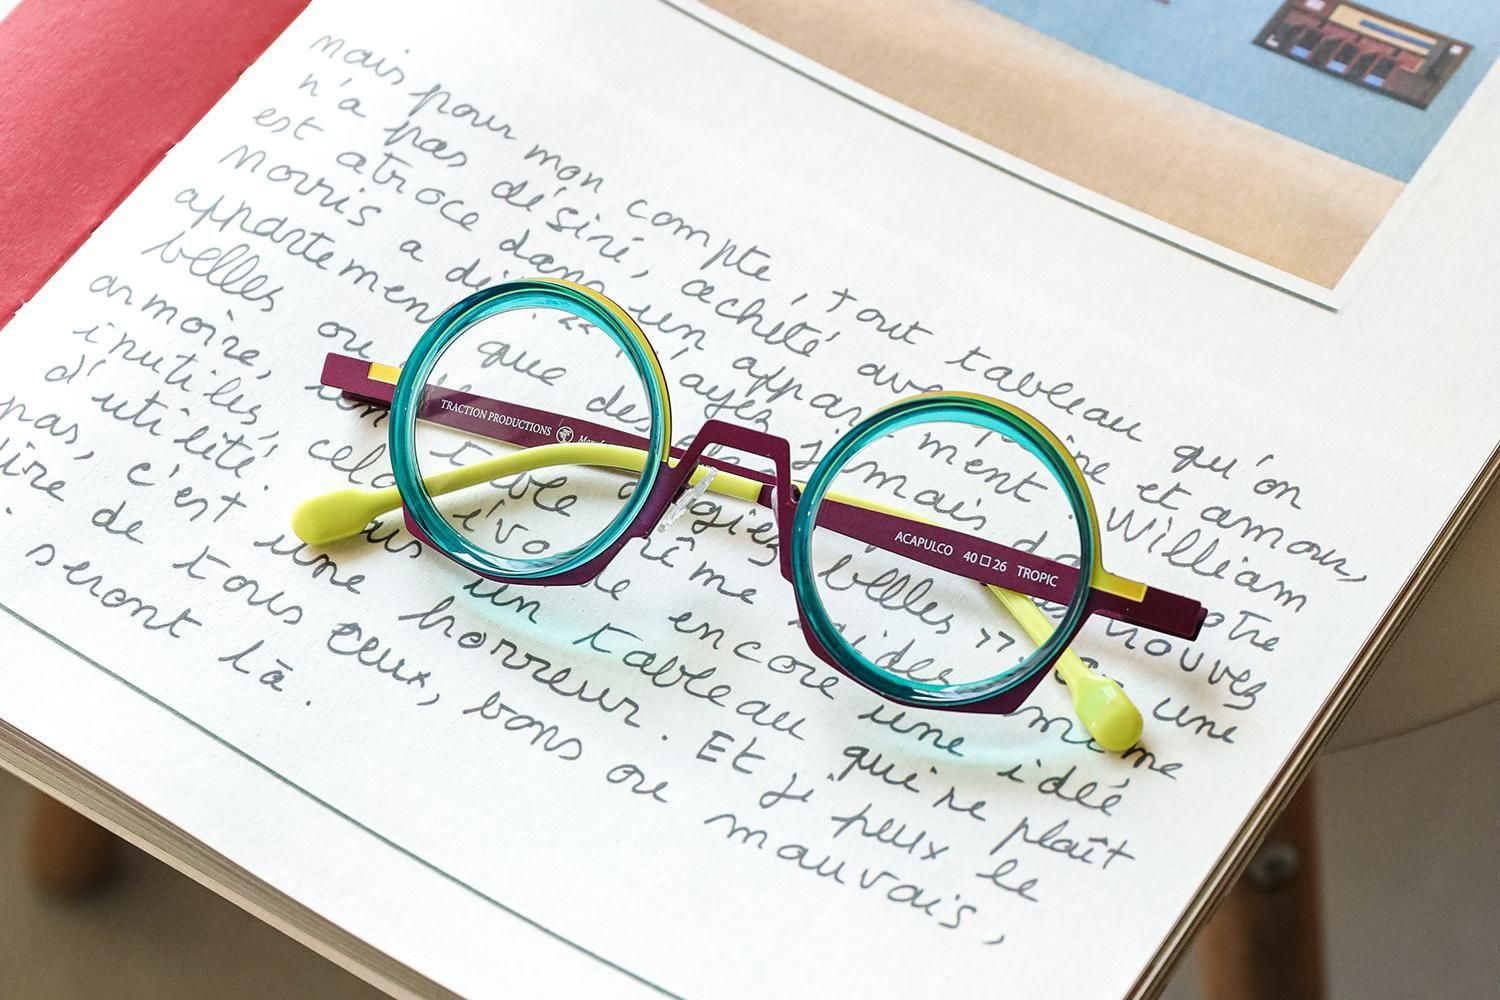 mais pour mon compte, tout tableau qu'on
n'a pas désiré, acheté avec peine et amour,
est atroce dans un appartement. William
Morris a dit : « n'ayez jamais dans votre
appartement que des trouvez
belles ou belles ». une
armoire, table même laides même
inutiles, cela encore une idée
d'utilité. un tableau qui ne plaît
pas, c'est une horreur. Et je peux le
dire de tous ceux, bons ou mauvais,
seront là.
TRACTION PRODUCTIONS
ACAPULCO 40□26 TROPIC